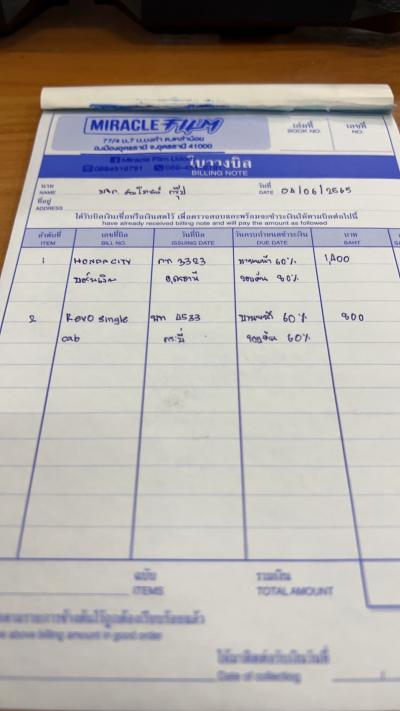 MIRACLE FILM
77/9 ม.7 บ.นาคำ ต.นากว้าง
อ.เมืองอุดรธานี จ.อุดรธานี 41000
Miracle Film Udon
เล่มที่
BOOK NO.
เลขที่
NO.
ใบวางบิล
BILLING NOTE
นาม
NAME
วันที่
DATE 04/06/2565
ที่อยู่
ADDRESS
ได้รับบิลเงินเชื่อหรือเงินสดไว้ เพื่อตรวจสอบและพร้อมจะชำระเงินให้ตามบิลดังต่อไปนี้
have already received billing note and will pay the amount as followed
ลำดับที่ เลขที่บิล วันที่บิล วันครบกำหนดชำระเงิน บาท
ITEM BILL NO. ISSUING DATE DUE DATE BAHT
1 HONDA CITY กท 3323 บานหน้า 60% 1,400
อ.อุดรธานี รอบคัน 80%
2 Revo single บท 4533 บานหน้า 60% 800
cab กระบี่ รอบคัน 60%
ฉบับ
ITEMS
รวมเงิน
TOTAL AMOUNT
ตามรายการข้างต้นไว้ถูกต้องเรียบร้อยแล้ว
above billing amount in good order
ได้มาติดต่อรับเงินวันที่
Date of collecting